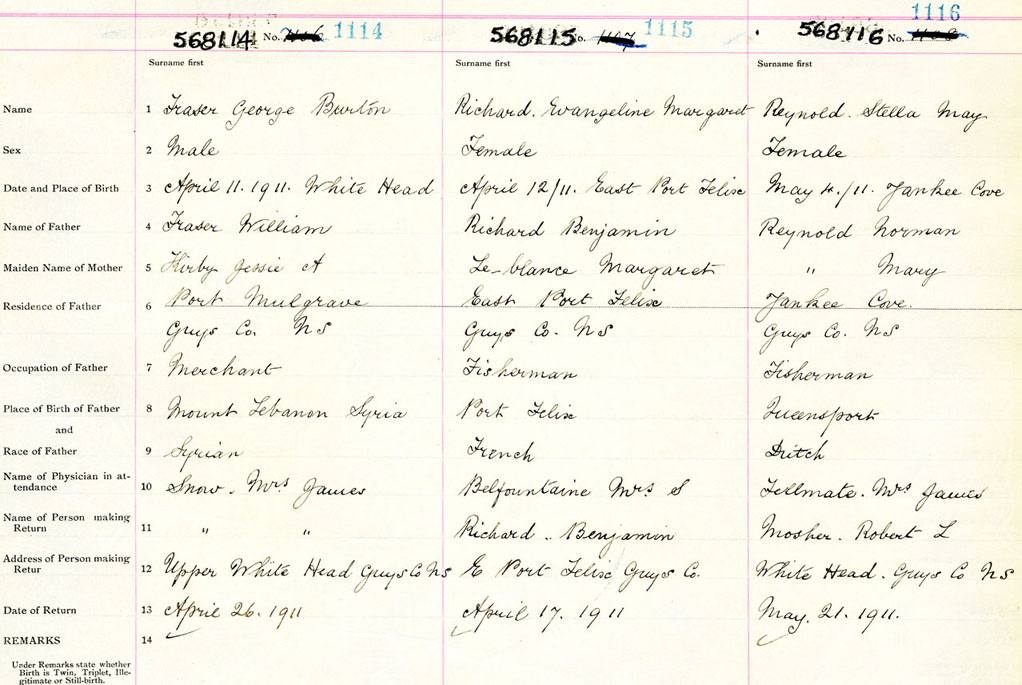 1116
568114 No. 1114
568115 No. 1107 1115
568116 No.
Surname first Surname first Surname first
Name 1 Fraser George Burton Richard. Evangeline Margaret Reynold. Stella May
Sex 2 Male Female Female
Date and Place of Birth 3 April 11. 1911. White Head April 12/11. East Port Felix May 4./11. Yankee Cove
Name of Father 4 Fraser William Richard Benjamin Reynold Norman
Maiden Name of Mother 5 Kirby Jessie A Le-blance Margaret " Mary
Residence of Father 6 Port Mulgrave East Port Felix Yankee Cove.
Guys Co. NS Guys Co. NS Guys Co. NS
Occupation of Father 7 Merchant Fisherman Fisherman
Place of Birth of Father 8 Mount Lebanon Syria Port Felix Queensport
and
Race of Father 9 Syrian French Dutch
Name of Physician in at-
tendance 10 Snow. Mrs James Belfountaine Mrs S Fellmate. Mrs James
Name of Person making
Return 11 " " Richard. Benjamin Mosher. Robert L
Address of Person making
Retur 12 Upper White Head Guys Co NS E Port Felix Guys Co. White Head. Guys Co NS
Date of Return 13 April 26. 1911 April 17. 1911 May. 21. 1911.
REMARKS 14
Under Remarks state whether
Birth is Twin, Triplet, Ille-
gitimate or Still-birth.